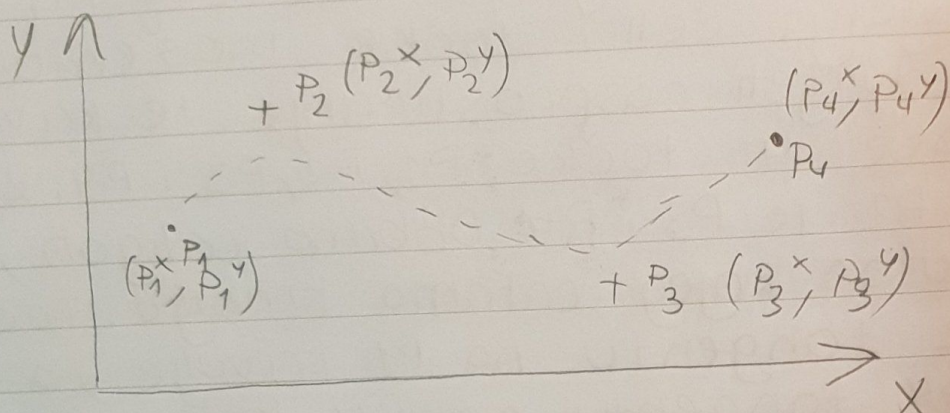 y
P₂ (P₂ˣ, P₂ʸ)
(P₄ˣ, P₄ʸ)
P₄
P₁
(P₁ˣ, P₁ʸ)
P₃ (P₃ˣ, P₃ʸ)
x